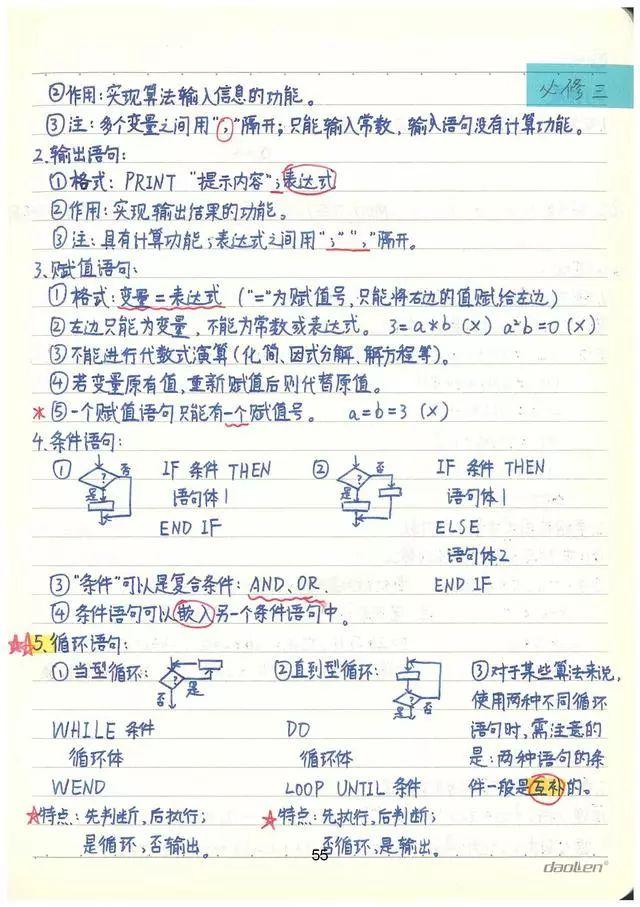 必修三
②作用:实现算法输入信息的功能。
③注:多个变量之间用","隔开;只能输入常数,输入语句没有计算功能。
2.输出语句:
①格式:PRINT "提示内容";表达式
②作用:实现输出结果的功能。
③注:具有计算功能;表达式之间用";"","隔开。
3.赋值语句:
①格式:变量=表达式 ("="为赋值号,只能将右边的值赋给左边)
②左边只能为变量,不能为常数或表达式。 3=a*b (×) a²b=0 (×)
③不能进行代数式演算(化简、因式分解、解方程等)。
④若变量原有值,重新赋值后则代替原值。
*⑤一个赋值语句只能有一个赋值号。 a=b=3 (×)
4.条件语句:
① ? 否 是 IF 条件 THEN
语句体1
END IF
② ? 否 是 IF 条件 THEN
语句体1
ELSE
语句体2
END IF
③"条件"可以是复合条件:AND、OR.
④条件语句可以嵌入另一个条件语句中。
☆☆5.循环语句:
①当型循环: ? 是 否
WHILE 条件
循环体
WEND
☆特点:先判断,后执行;
是循环,否输出。
②直到型循环: ? 是 否
DO
循环体
LOOP UNTIL 条件
☆特点:先执行,后判断;
否循环,是输出。
③对于某些算法来说,
使用两种不同循环
语句时,需注意的
是:两种语句的条
件一般是互补的。
55
daolen®